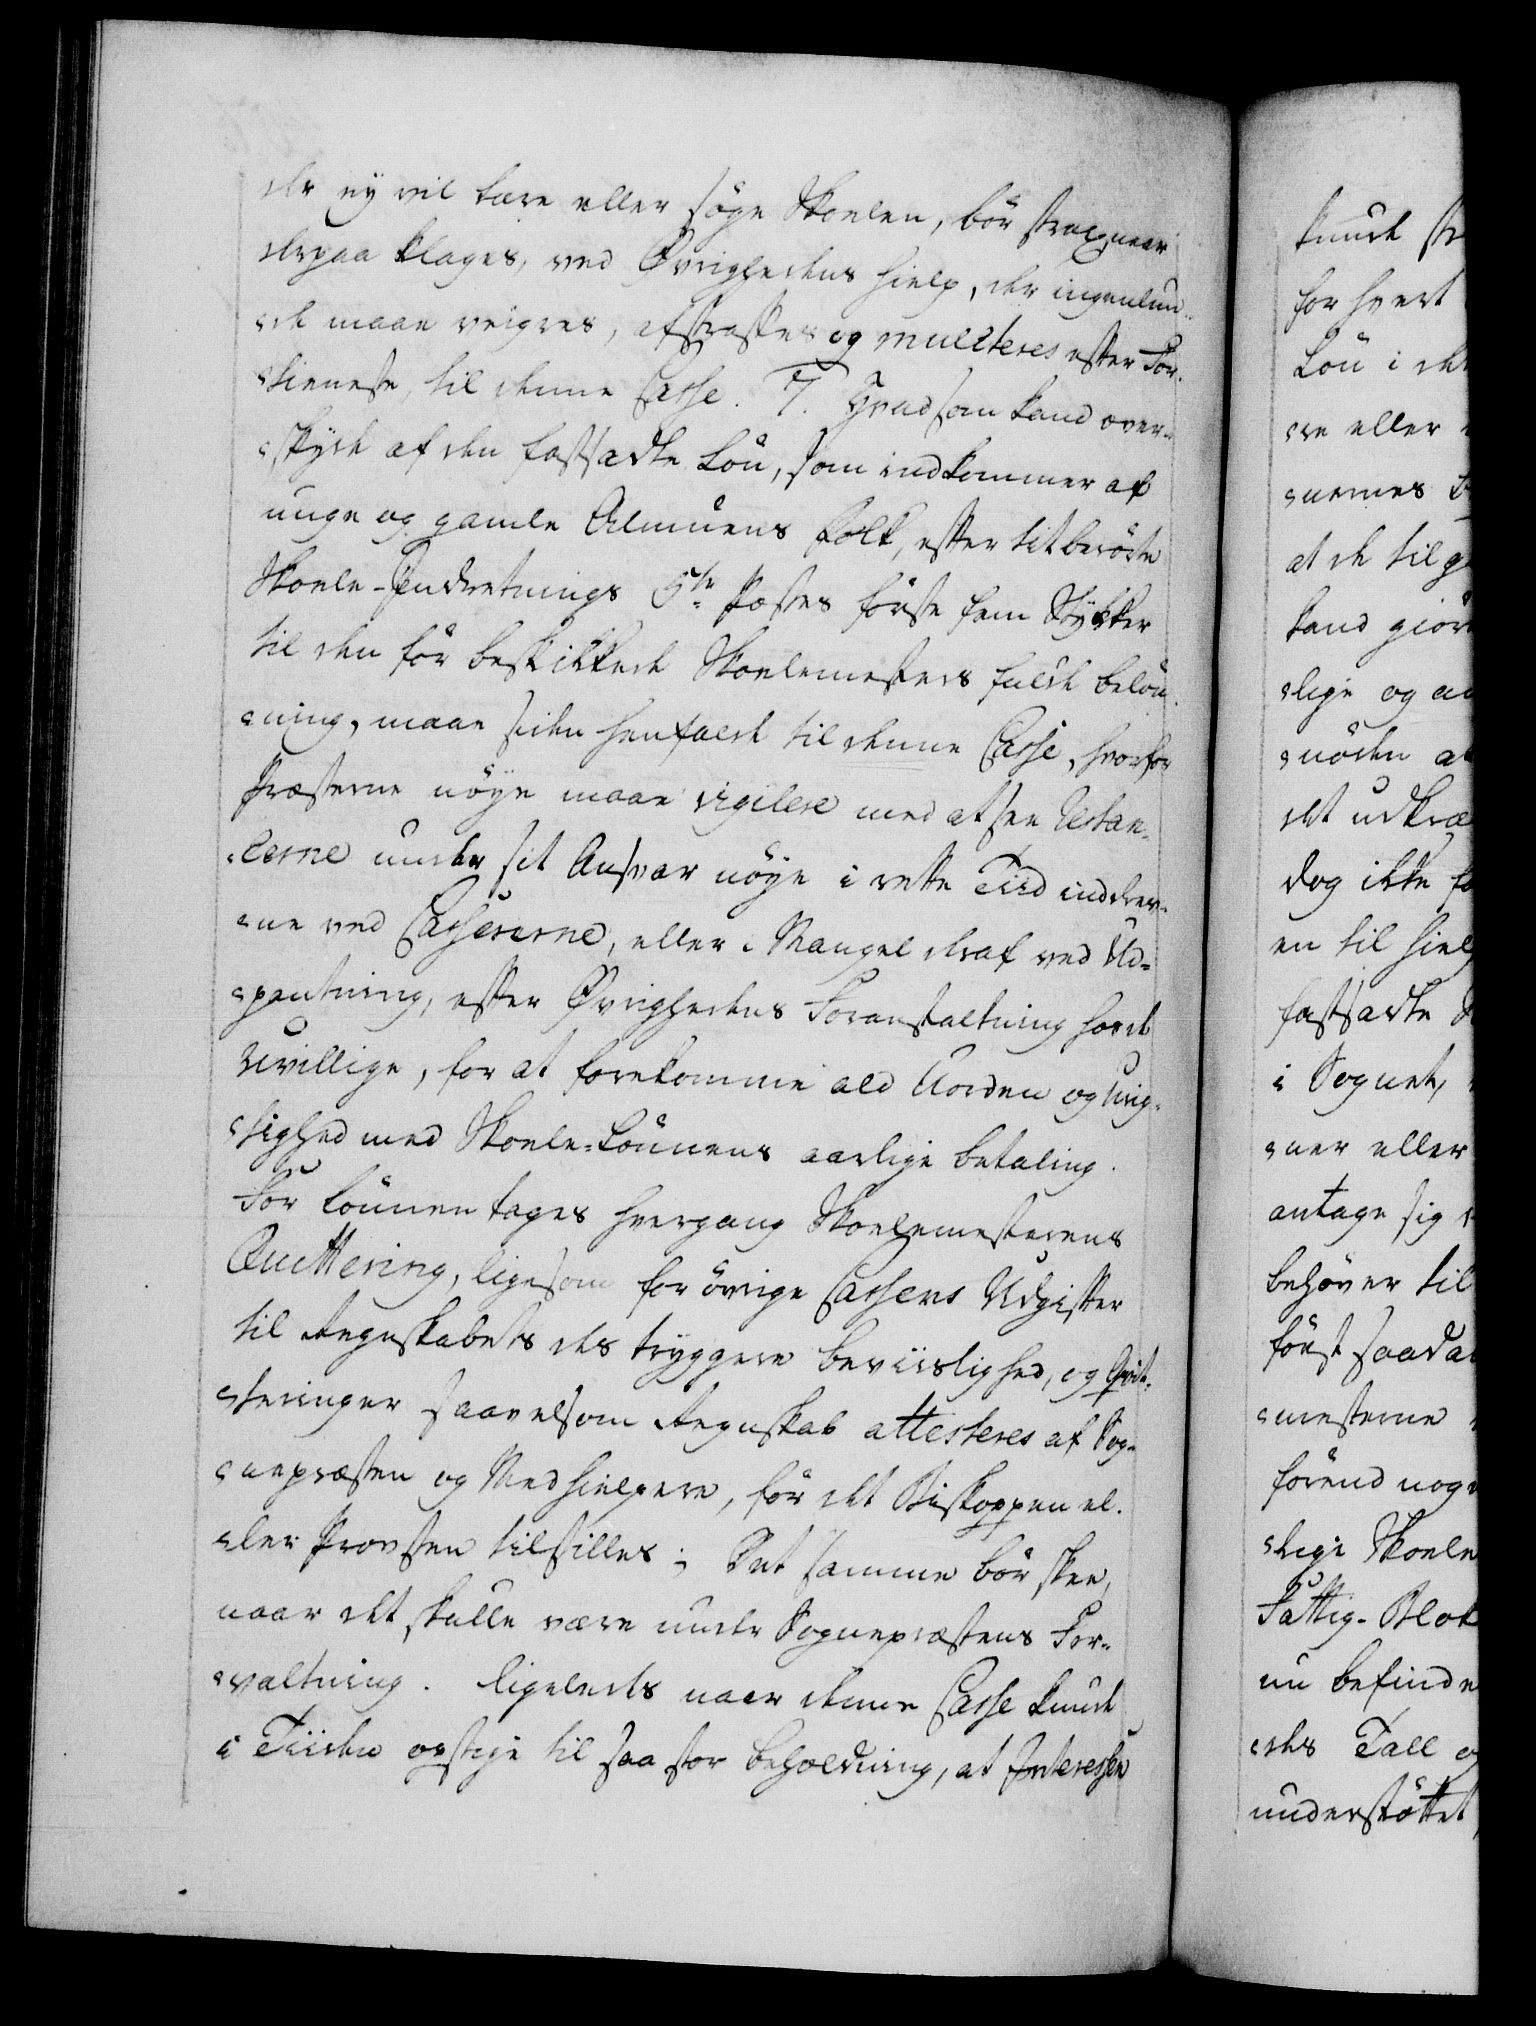 der ej vil lære eller søge Skolen, bør strax naar
derpaa klages, ved Øvrighedens Hielp, der ingenlun-
de maae veigres, afstraffes og mulcteres efter For-
tieneste, til denne Casse. 7. Hvad som kand over-
skyde af den fastsadte Løn, som indkommer af
unge og gamle Almuens Folk, efter titberørte
Skole-Indretnings 5te Postes første fem Stykker
til den før beskikkede Skolemesters fulde beløn-
ning, maae siden henfalde til denne Casse, hvorfor
Præsterne nøye maae vigilere med at see Restan-
cerne under sit Ansvar nøye i rette Tiid inddrev-
ne ved Cassererne, eller i Mangel deraf ved Ud-
pantning, efter Øvrighedens Foranstaltning hos de
Uvillige, for at forekomme ald Uorden og Urig-
tighed med Skole-Lønnens aarlige betaling.
For Lønnen tages hvergang Skolemesterens
Quittering, ligesom for øvrige Cassens Udgifter
til Regnskabets des tryggere beviislighed, og Qvit-
teringer saavelsom Regnskab attesteres af Sog-
nepræsten og Medhielpere, før det Biskoppen el-
ler Provsten tilstilles; Det samme bør skee,
naar det skulle være under Sognepræstens For-
valtning. Ligeledes naar denne Casse kunde
i Tiiden opstige til saa stor beholdning, at Interessen
kunde
for hvert
Løn i det
re eller
nernes
at de
kand giøre
lige og
nøden
det
dog ikke
en til
fastsadte
i Sognet,
ner eller
antage sig
behøver til
først
mesterne
førend
lige Skole
Fattig-Blok
nu
des Tall
understøttet